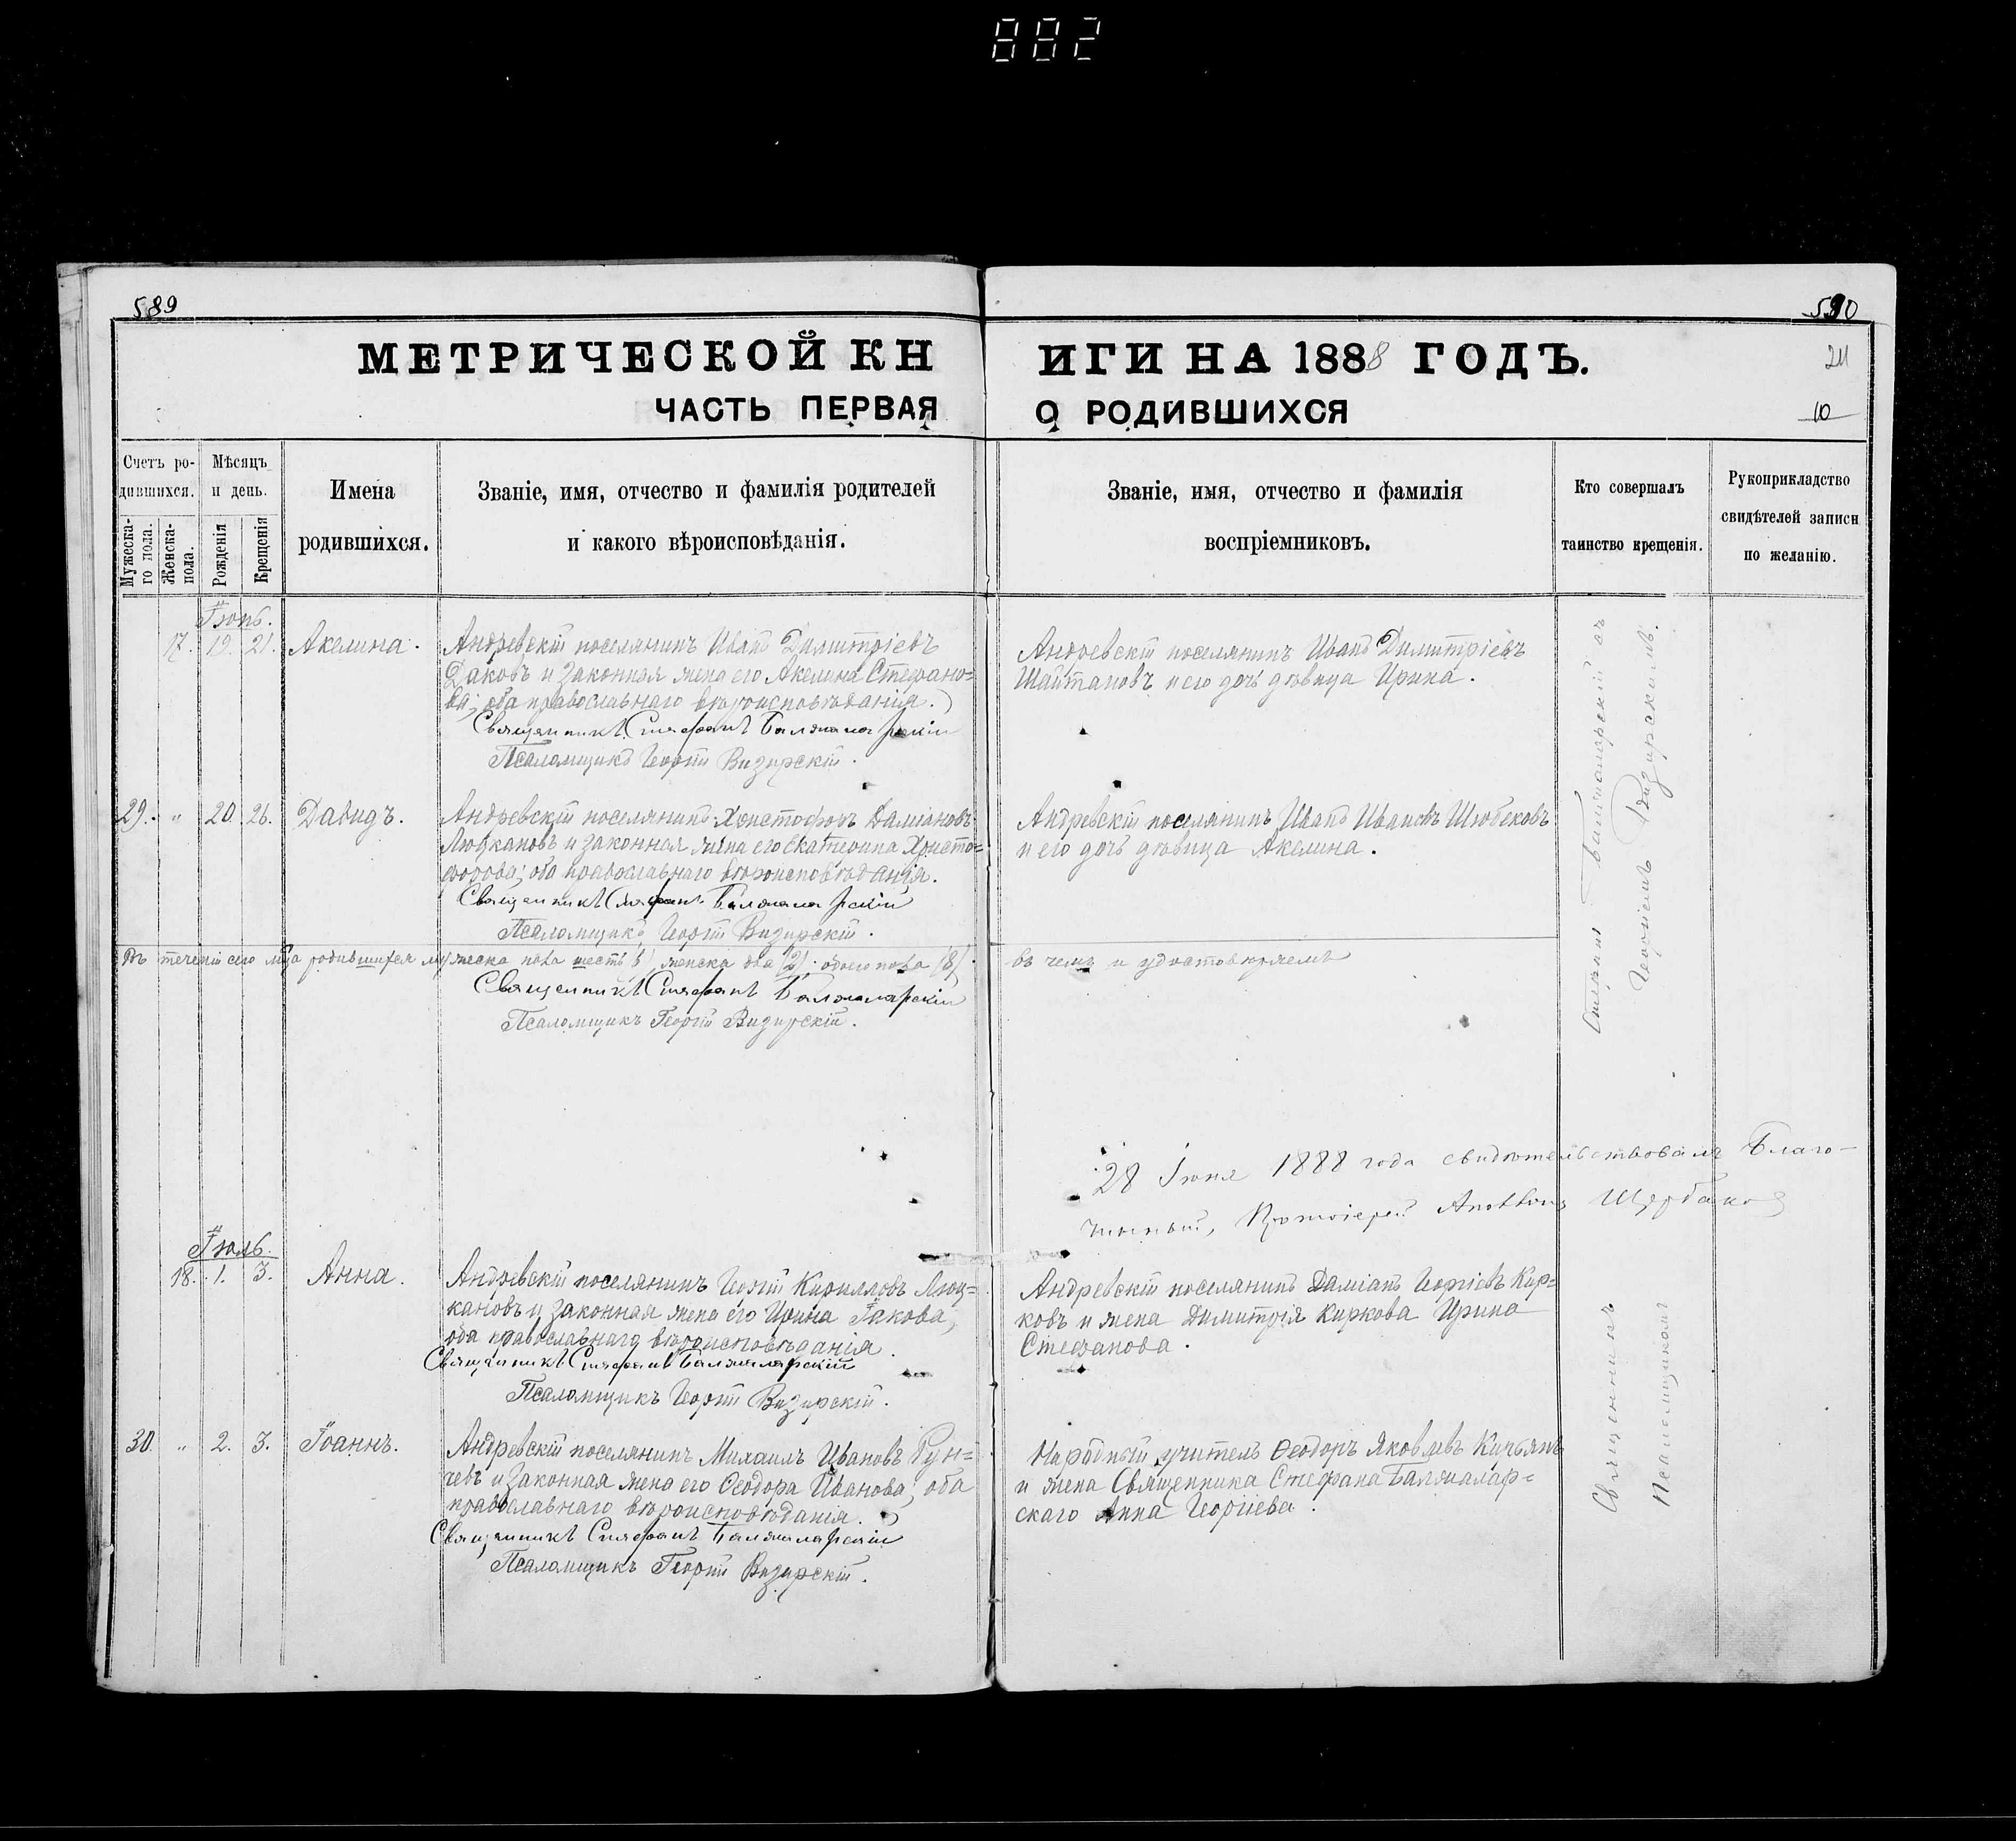 882
589
590
МЕТРИЧЕСКОЙ КН
ИГИ НА 1888 ГОДЪ.
ЧАСТЬ ПЕРВАЯ
О РОДИВШИХСЯ
10
Счетъ ро-
дившихся.
Мѣсяцъ
и день.
Мужеска-
го пола.
Женска-
пола.
Рожденія
Крещенія
Имена
родившихся.
Званіе, имя, отчество и фамилія родителей
и какого вѣроисповѣданія.
Званіе, имя, отчество и фамилія
воспріемниковъ.
Кто совершалъ
таинство крещенія.
Рукоприкладство
свидѣтелей записи
по желанію.
Іюнь.
17. 19. 21. Акелина.
Андреевскій поселянинъ Иванъ Димитріевъ
Даковъ и законная жена его Акелина Стефано=
ва; оба православнаго вѣроисповѣданія.
Священникъ Стефанъ Балжаларскій
Псаломщикъ Георгій Визирскій.
Андреевскій поселянинъ Иванъ Димитріевъ
Шайтановъ и его дочь дѣвица Ирина.
29. " 20. 26. Давидъ.
Андреевскій поселянинъ Христофоръ Даміановъ
Люцкановъ и законная жена его Екатерина Христо=
форова; оба православнаго вѣроисповѣданія.
Священникъ Стефанъ Балжаларскій
Псаломщикъ Георгій Визирскій.
Андреевскій поселянинъ Иванъ Ивановъ
и его дочь дѣвица Акелина.
Въ теченіи сего мѣсяца родившихся мужеска пола шесть (6), женска два (2); обоего пола (8)
въ чемъ и удостовѣряемъ
Священникъ Стефанъ Балжаларскій
Псаломщикъ Георгій Визирскій.
28 Іюня 1888 года свидѣтельствовалъ Благо-
чинный, Протоіерей Щербаковъ
Іюль.
18. 1. 3. Анна.
Андреевскій поселянинъ Георгій Кирилловъ Люц=
кановъ и законная жена его Ирина Іакова;
оба православнаго вѣроисповѣданія.
Священникъ Стефанъ Балжаларскій
Псаломщикъ Георгій Визирскій.
Андреевскій поселянинъ Даміанъ Георгіевъ Кир=
ковъ и жена Димитрія Киркова Ирина
Стефанова.
30. " 2. 3. Іоаннъ.
Андреевскій поселянинъ Михаилъ Ивановъ Гун=
чевъ и законная жена его Ѳеодора Иванова; оба
православнаго вѣроисповѣданія.
Священникъ Стефанъ Балжаларскій
Псаломщикъ Георгій Визирскій.
Народный учитель Ѳеодоръ Яковлевъ
и жена Священника Стефана Балжалар=
скаго Анна Георгіева.
Священникъ Стефанъ Балжаларскій съ
Псаломщикомъ Георгіемъ Визирскимъ.